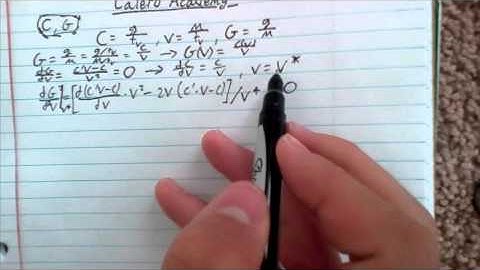 Calero Academy
(C, G)
C = g/tv, v = m/tv, G = g/m
G = g/m = g/tv / m/tv = C/v → G(v) = C(v)/v
dG/dv = C'v-C/v² = 0 → dC/dv = C/v, v = v*
dG/dv [d(C'v-C)/dv · v² - 2v(C'·v-C)]/v⁴ 0